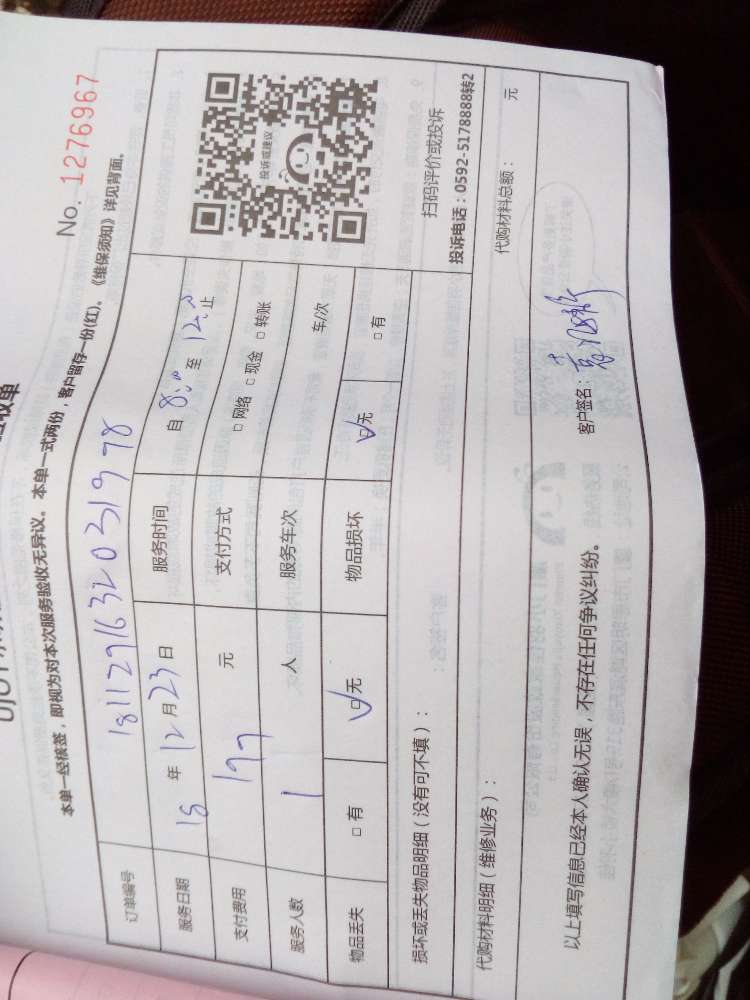 收单
No. 1276967
本单一经核签，即视为对本次服务验收无异议。本单一式两份，客户留存一份(红)。《维保须知》详见背面。
订单编号 1811291632031978
服务日期 18 年 12 月 23 日 服务时间 自 8:00 至 12:00 止
支付费用 197 元 支付方式 □ 网络 □ 现金 □ 转账
服务人数 1 人 服务车次 车/次
物品丢失 □ 有 ☑ 无 物品损坏 ☑ 无 □ 有
投诉或建议
扫码评价或投诉
投诉电话：0592-5178888转2
损坏或丢失物品明细（没有可不填）：
代购材料明细（维修业务）： 代购材料总额： 元
以上填写信息已经本人确认无误，不存在任何争议纠纷。
客户签名：